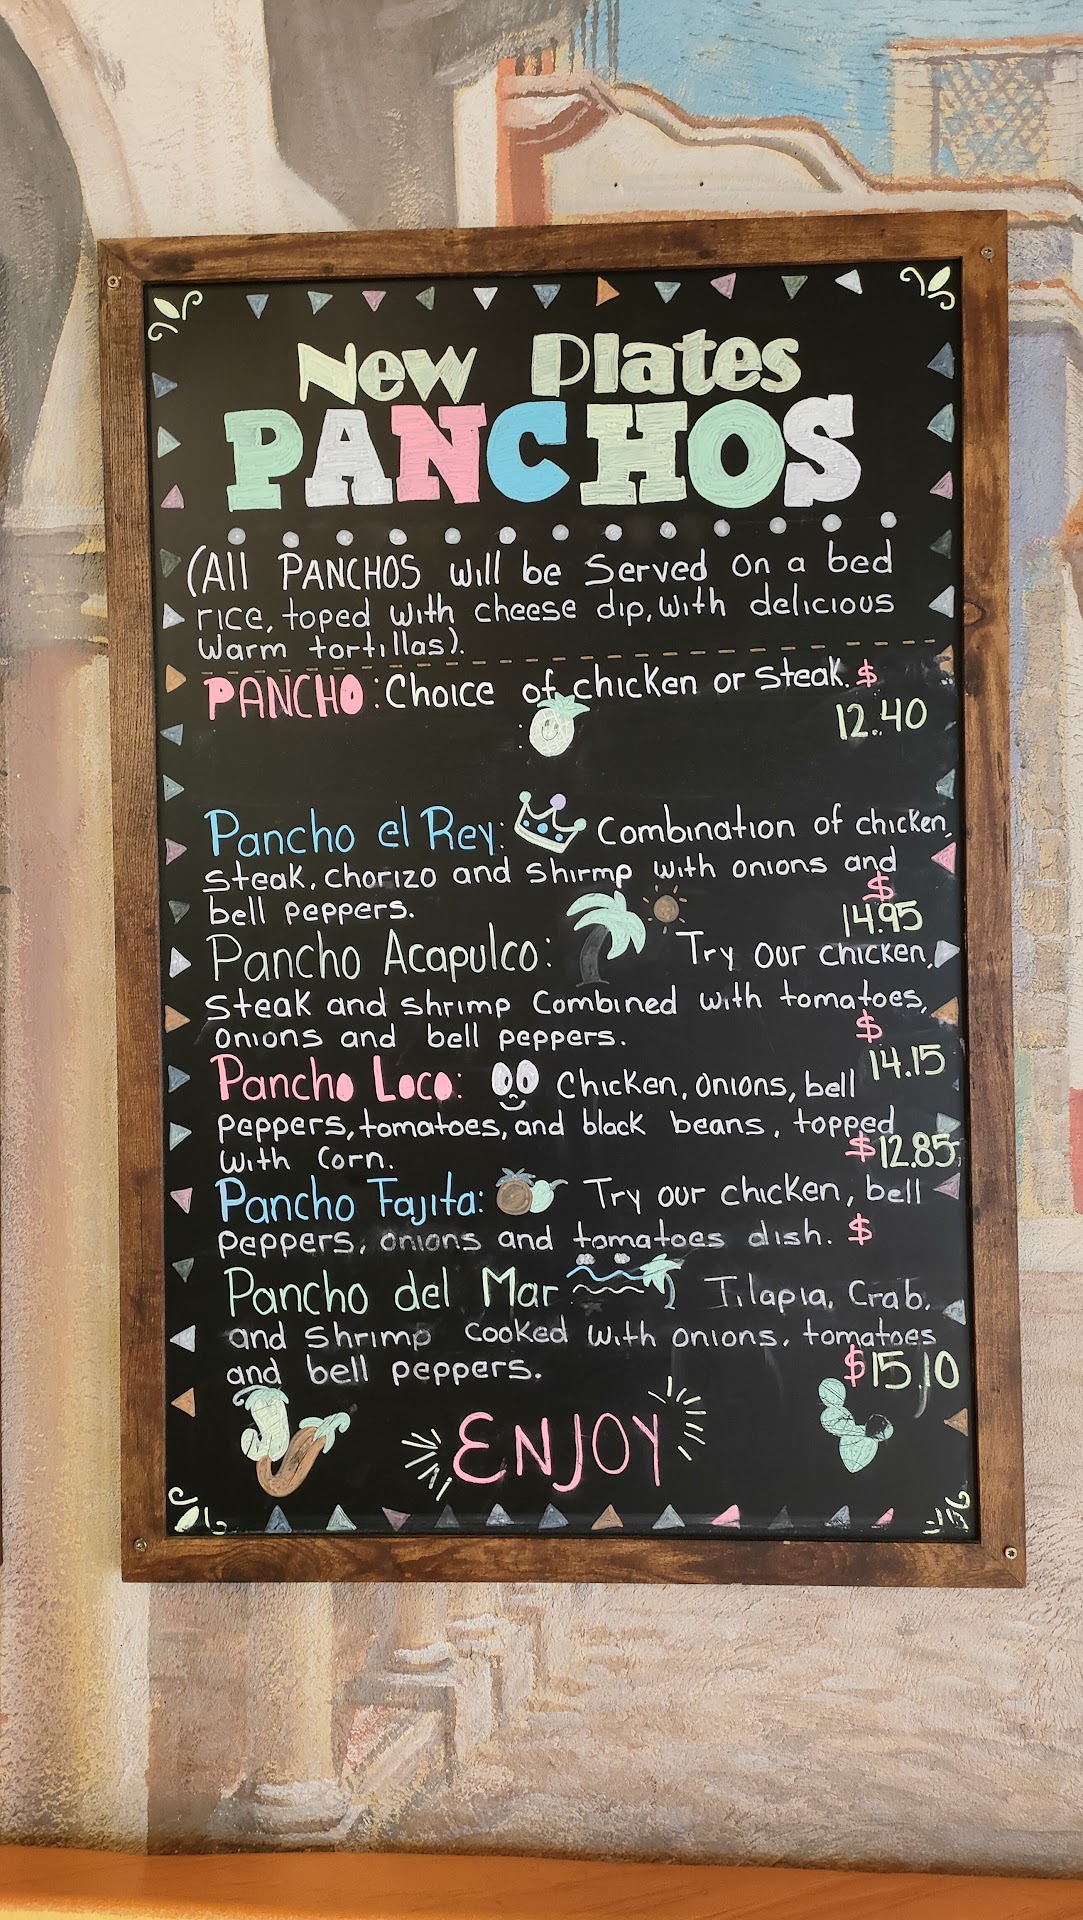 New Plates
PANCHOS
(All PANCHOS will be Served on a bed
rice, toped with cheese dip, with delicious
warm tortillas).
PANCHO: Choice of chicken or steak. $
12.40
Pancho el Rey: Combination of chicken,
steak, chorizo and shirmp with onions and
bell peppers. $
14.95
Pancho Acapulco: Try our chicken,
steak and shrimp combined with tomatoes,
onions and bell peppers. $
14.15
Pancho Loco: Chicken, onions, bell
peppers, tomatoes, and black beans, topped
with corn. $12.85
Pancho Fajita: Try our chicken, bell
peppers, onions and tomatoes dish. $
Pancho del Mar Tilapia, Crab,
and shrimp cooked with onions, tomatoes
and bell peppers. $15.10
ENJOY